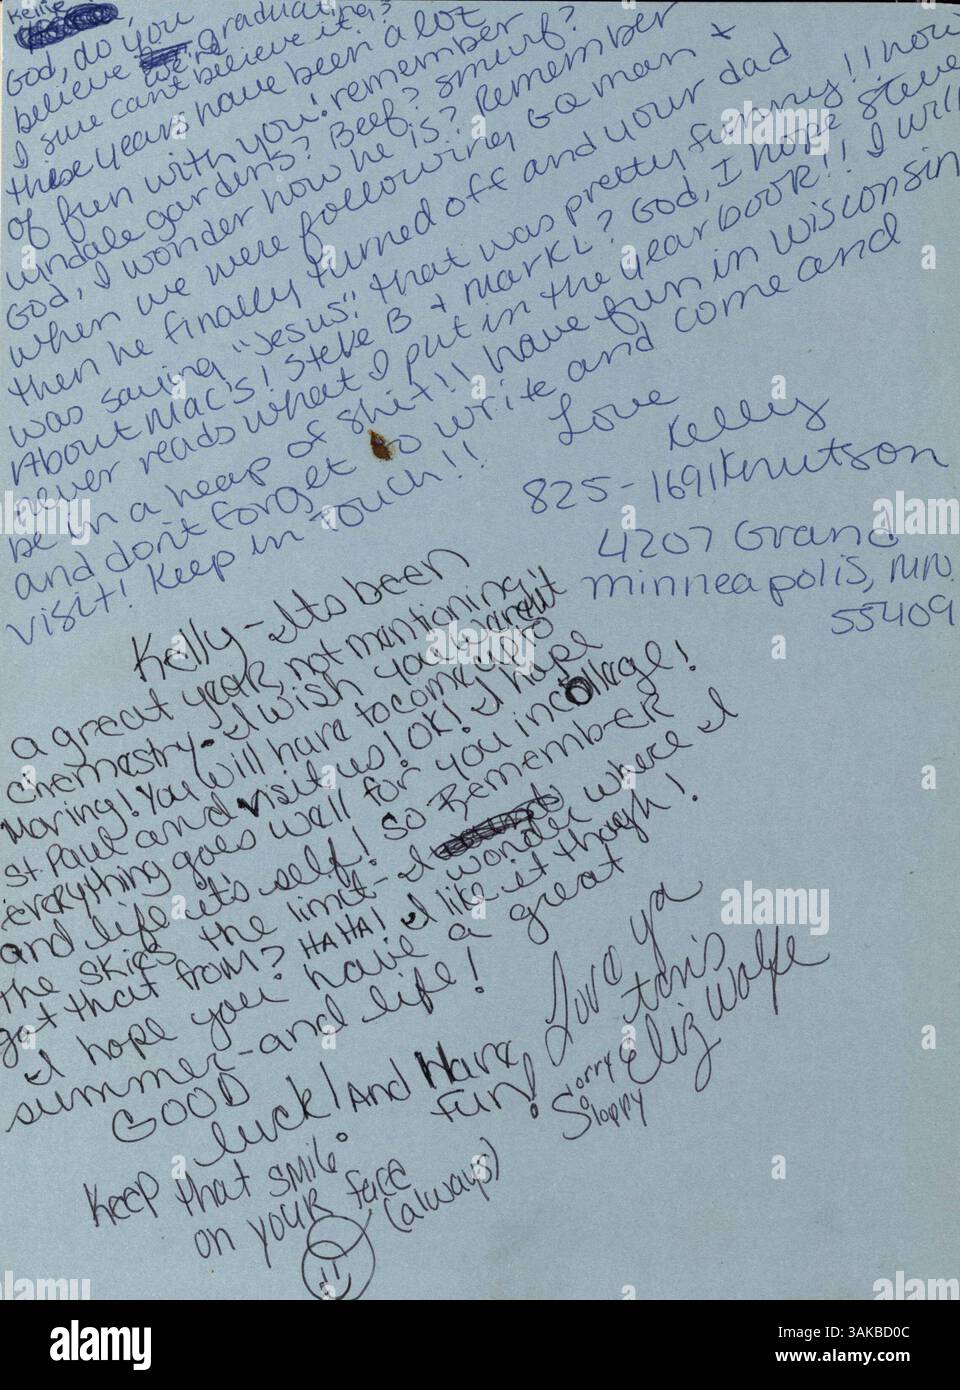 Kellie,
God, do you
believe we're graduating?
I sure can't believe it!
these years have been a lot
of fun with you! remember
windale gardens? Beef? Smurf?
God, I wonder how he is? Remember
when we were following Goman +
then he finally turned off and your dad
was saying "Jesus". that was pretty funny!! now
About Mac's! Steve B + Mark L? God, I hope Steve
never reads what I put in the yearbook!! I will
be in a heap of shit!! have fun in wisconsin
and don't forget to write and come and
visit! Keep in touch!!
Love
Kelly
Knutson
825-1691
4207 Grand
minneapolis, MN
55409
Kelly-Its been
a great year, not mantioning
chemestry. I wish you weren't
Moving! You will have to come up to
St. Paul and visit us! OK! I hope
everything goes well for you in college!
and life it's self! So Remember
the skies the limit- I wonder where I
got that from? HAHA! I like it though!
I hope you have a great
summer-and life!
GOOD
luck! And Have
fun!
Love ya
Eliz Wolfe
Sorry
Sloppy
Keep that smile
on your face
(always)
alamy
Image ID: 3AKBD0C
www.alamy.com